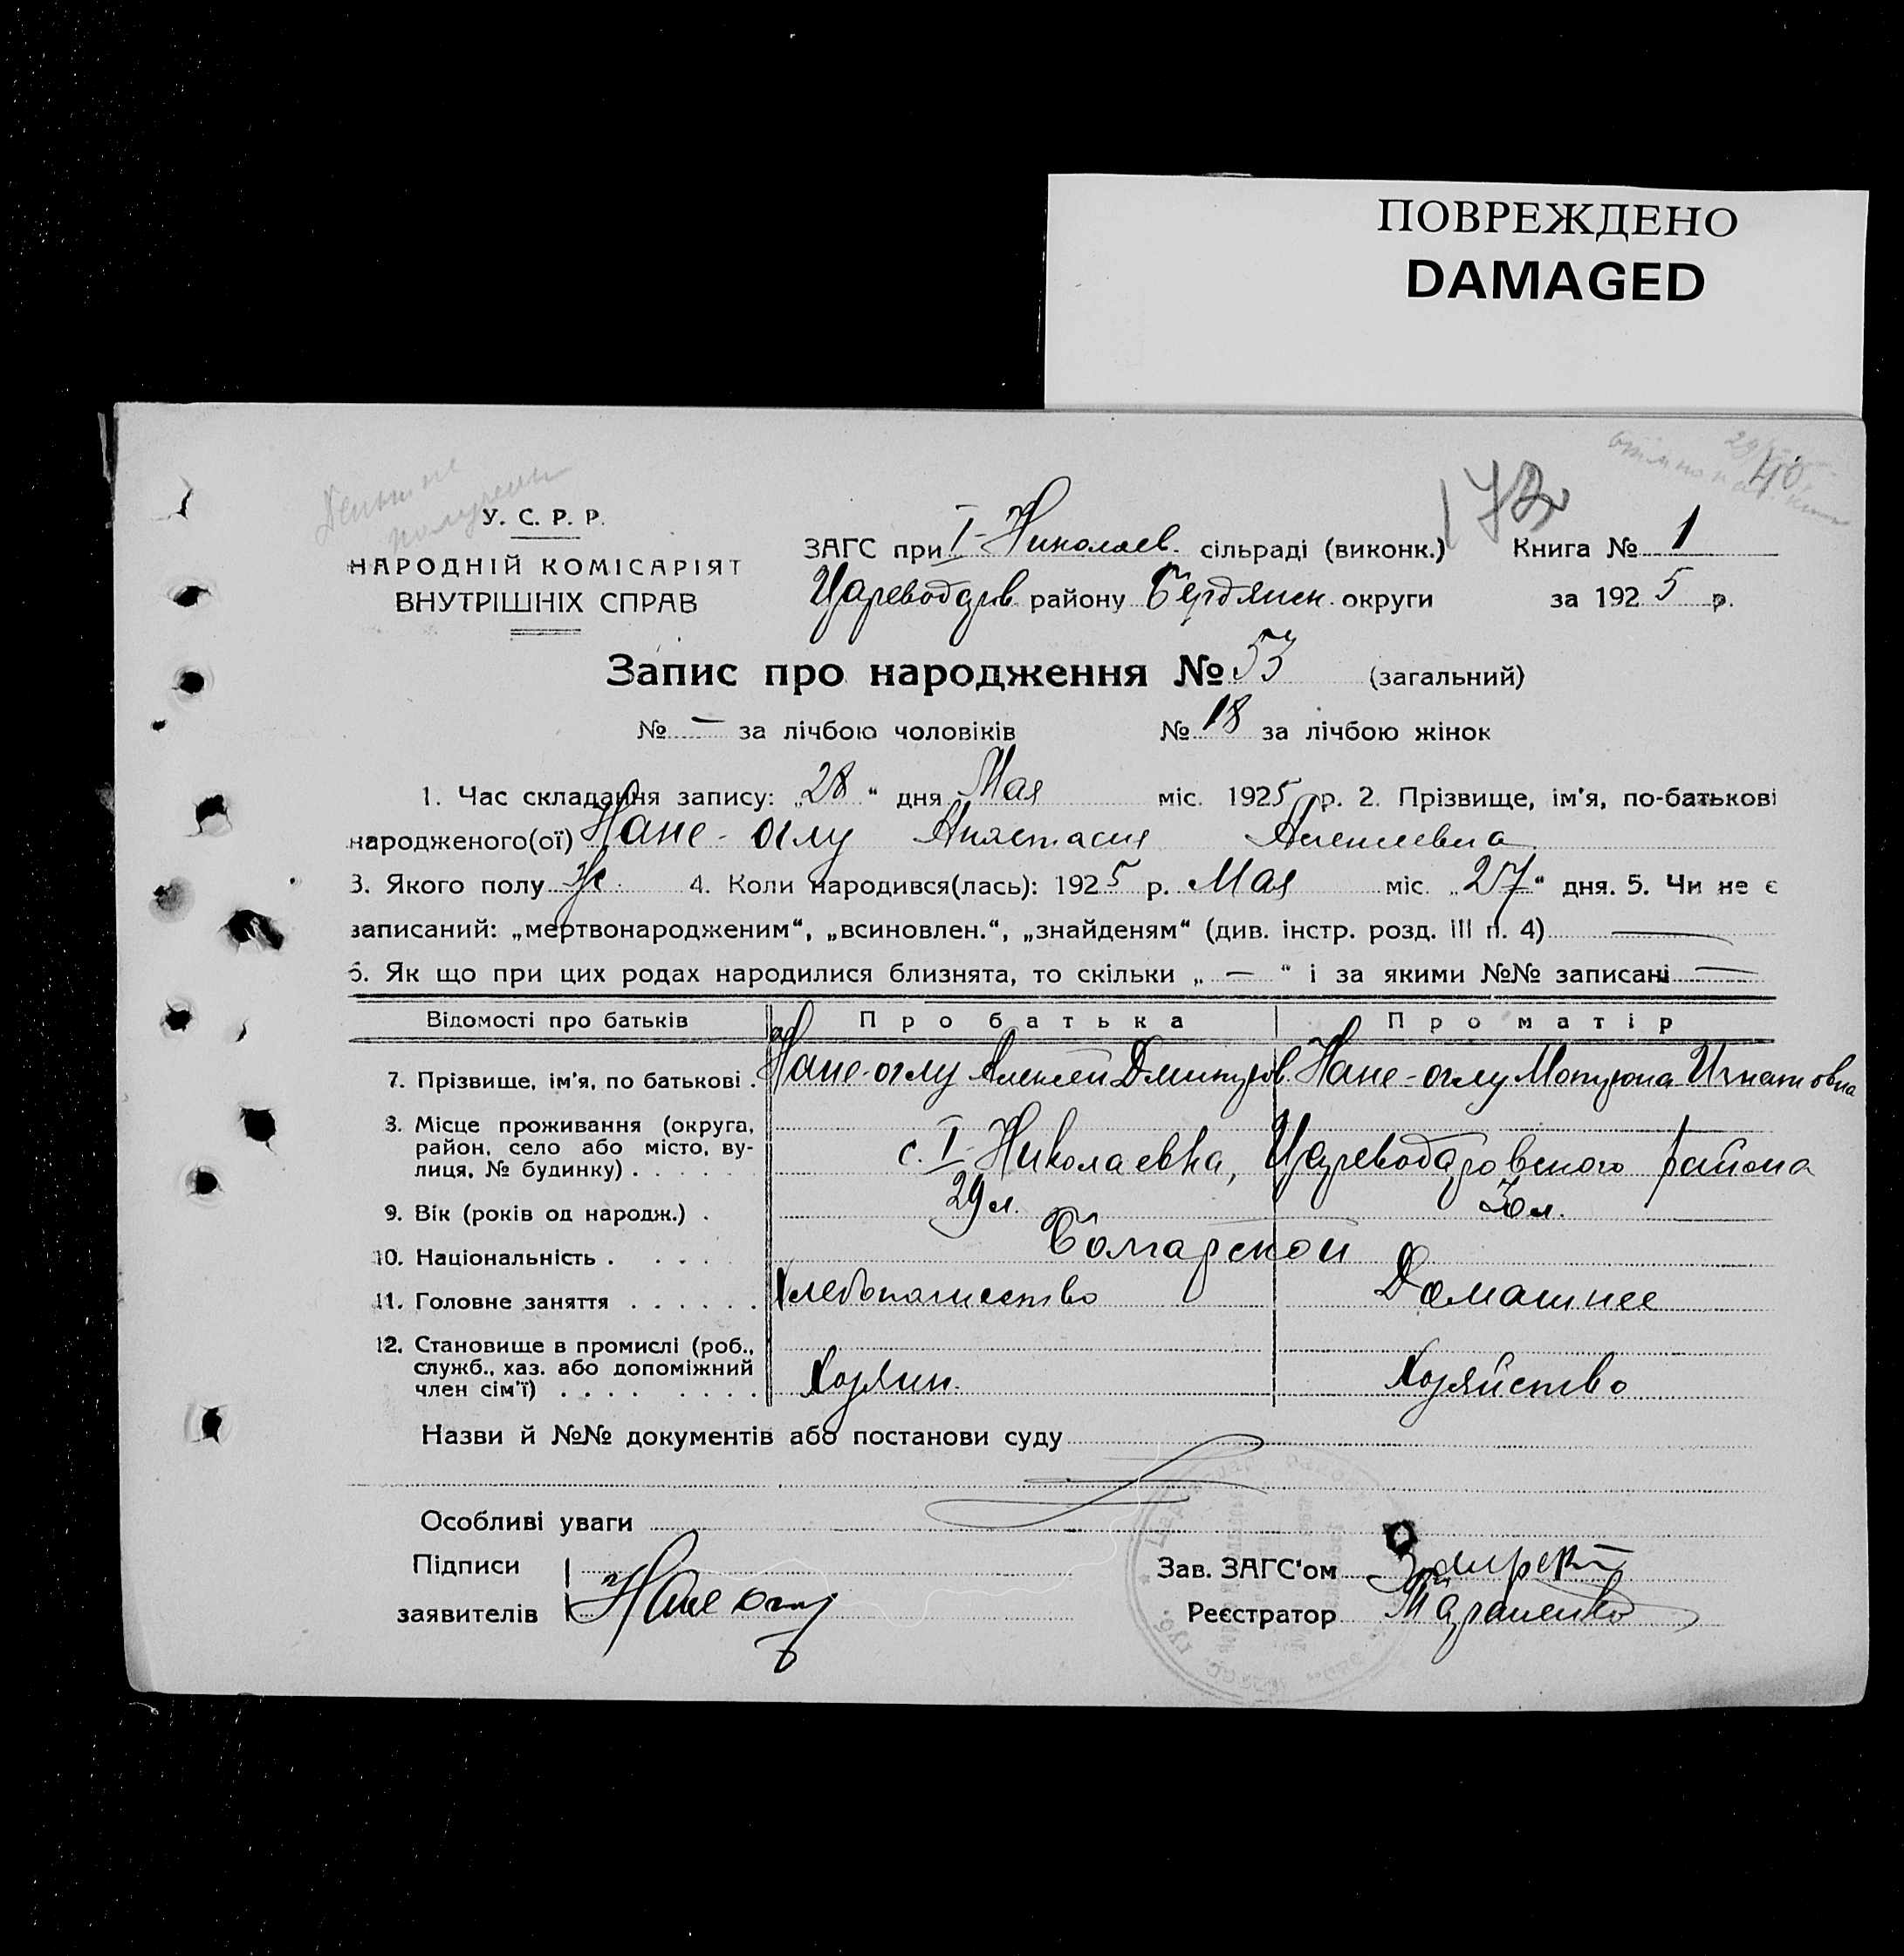 ПОВРЕЖДЕНО
DAMAGED
40
173
Деньги не
получены
У. С. Р. Р.
НАРОДНІЙ КОМІСАРІЯТ
ВНУТРІШНІХ СПРАВ
ЗАГС при I-Николаев. сільраді (виконк.) Книга № 1
Цареводаров. району Бердянск. округи за 1925 р.
Запис про народження № 53 (загальний)
№ — за лічбою чоловіків № 18 за лічбою жінок
1. Час складання запису: „28“ дня Мая міс. 1925 р. 2. Прізвище, ім'я, по-батькові
народженого(ої) Нане-оглу Анастасия Алексеевна.
3. Якого полу ж. 4. Коли народився(лась): 1925 р. Мая міс. „27“ дня. 5. Чи не є
записаний: „мертвонародженим“, „всиновлен.“, „знайденям“ (див. інстр. розд. III п. 4) —
6. Як що при цих родах народилися близнята, то скільки „ — “ і за якими №№ записані —
Відомості про батьків Про батька Про матір
7. Прізвище, ім'я, по батькові . Нане-оглу Алексей Дмитров. Нане-оглу Мотрона Игнатовна
8. Місце проживання (округа,
район, село або місто, ву-
лиця, № будинку) . . . . . с. I-Николаевка, Цареводаровского района
9. Вік (років од народж.) . 29 л. 30 л.
10. Національність . . . . Болгарской
11. Головне заняття . . . . . . Хлебопашество Домашнее
12. Становище в промислі (роб.,
служб., хаз. або допоміжний
член сім'ї) . . . . . . . . Хозяин. Хозяйство
Назви й №№ документів або постанови суду
Особливі уваги
Підписи
заявителів Нане оглу
Зав. ЗАГС'ом
Реєстратор